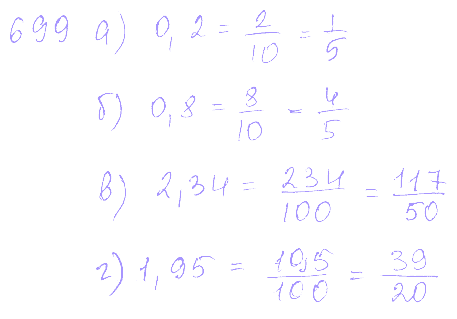 699 а) 0,2 = 2/10 = 1/5
б) 0,8 = 8/10 = 4/5
в) 2,34 = 234/100 = 117/50
г) 1,95 = 195/100 = 39/20